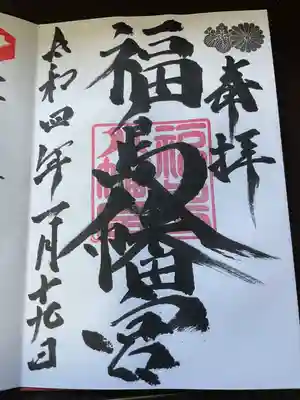 奉拝
福島八幡宮
令和四年一月十九日